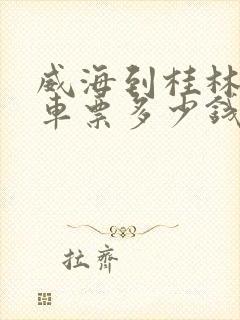 威海到桂林
车票多少钱
拉齐